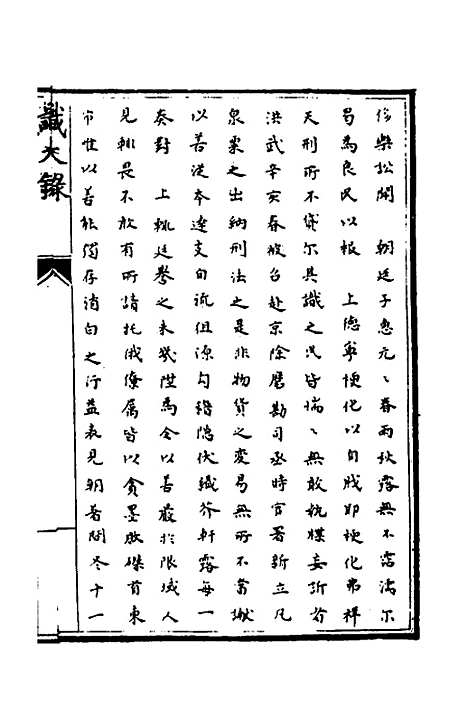 徐柴松開　朝廷子惠元〻春雨秋露無不霑濡尔
曷為良民以報　上德寧梗化以自戕卽梗化弗祥
天刑所不貸尔其識之汎皆惴〻無敢執牒妄訴者
洪武辛亥春被召赴京除磨勘司丞時官署新立凡
泉粟之出納刑法之是非物貨之變易無所不當
以善從本達支自流徂源勾稽隱伏纖芥軒露每一
奏對　上輒廷譽之未幾陞為令以善嚴於限域人
見輒畏不敢有所請托俄僚屬皆以貪墨敗磔首東
市惟以善能獨存消白之行益表見朝著間冬十一
識大錄